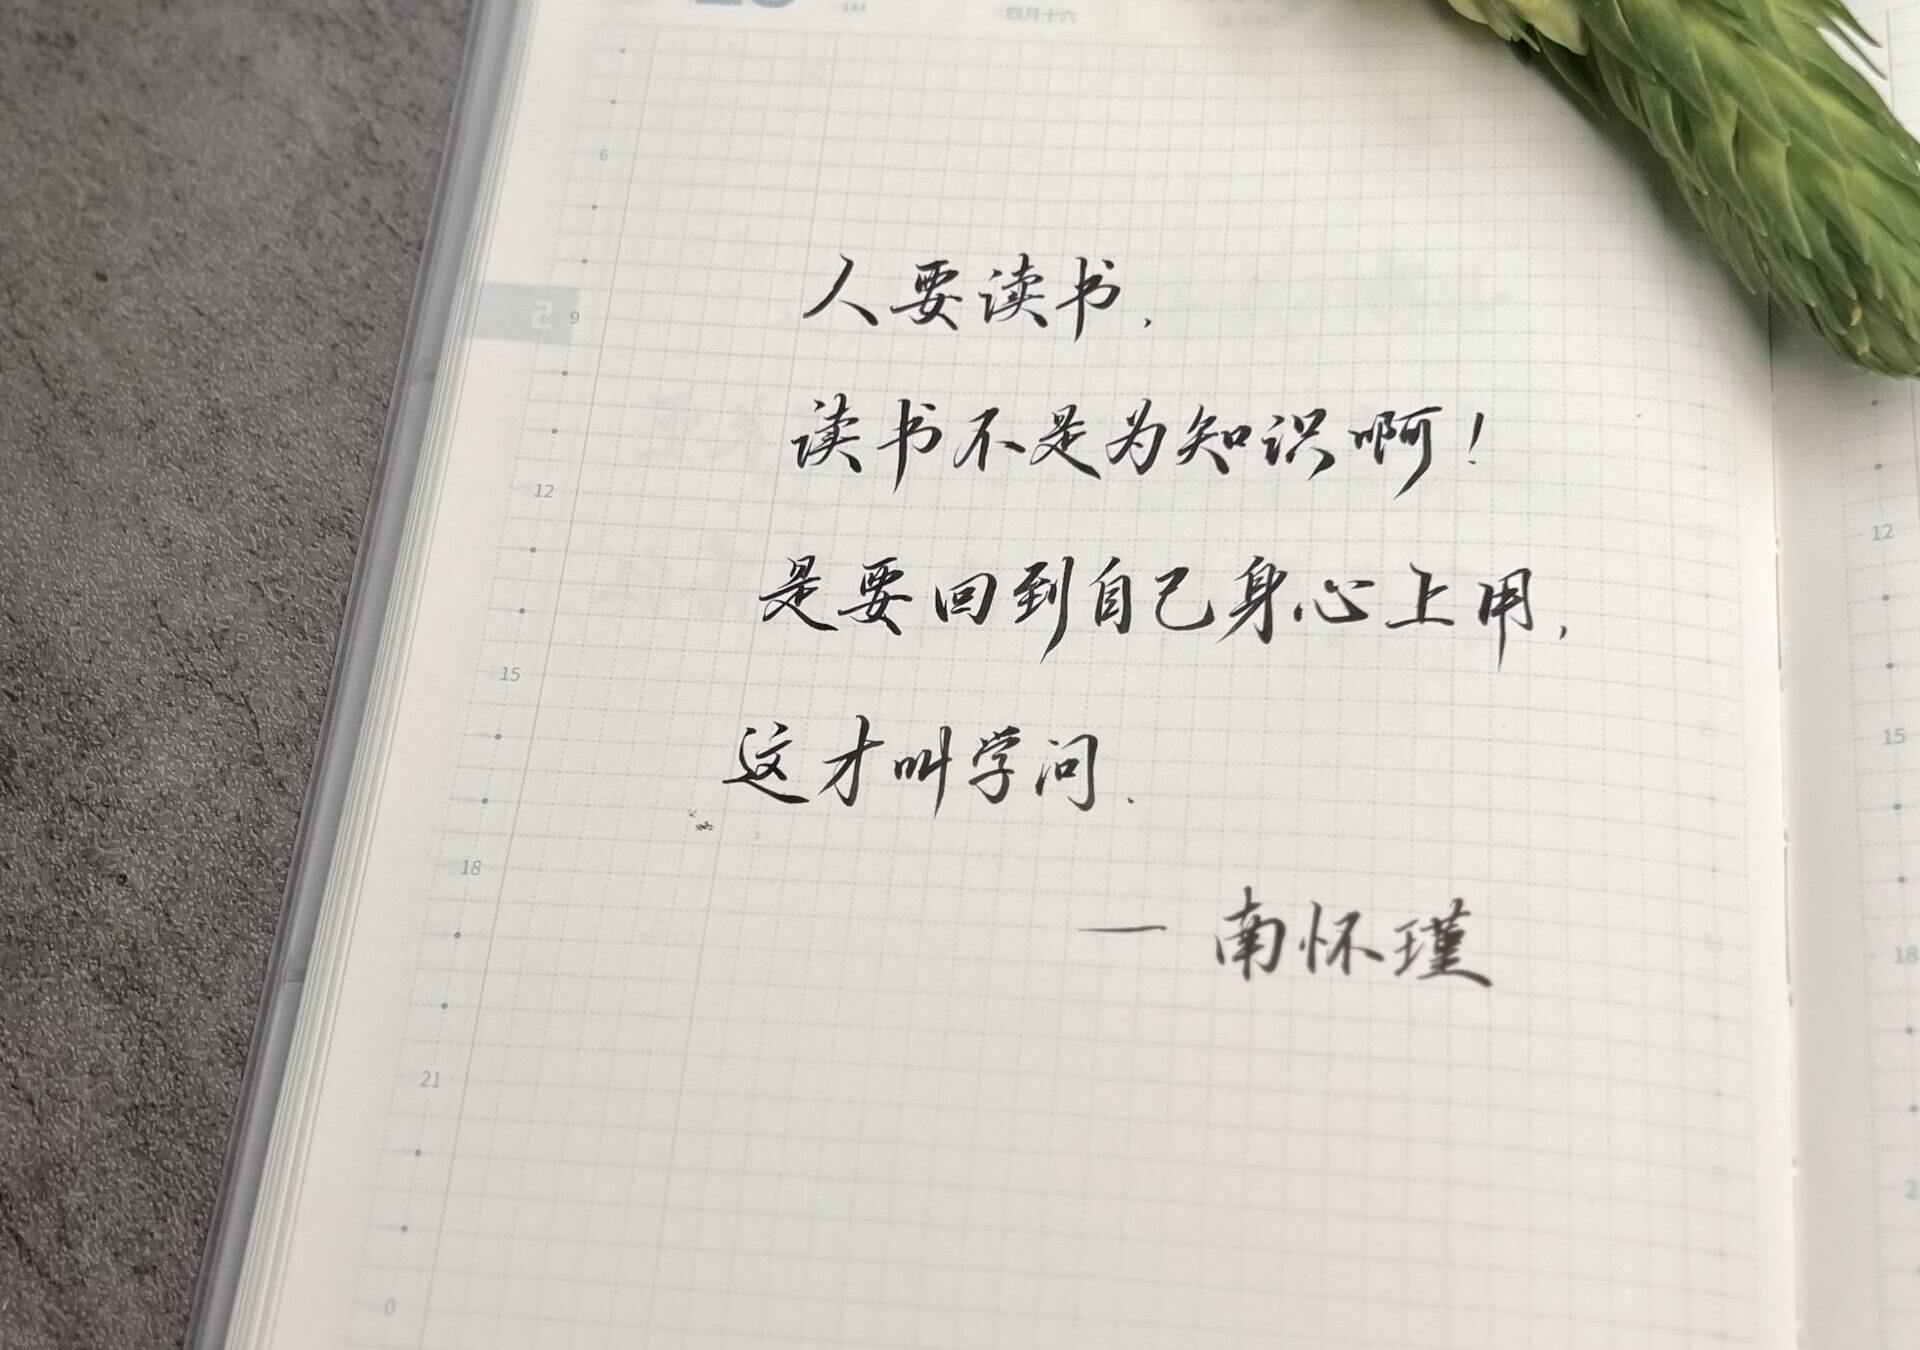 144 四月十六
人要读书,
读书不是为知识啊!
是要回到自己身心上用,
这才叫学问.
— 南怀瑾
6
5 9
12
15
18
21
0
12
15
18